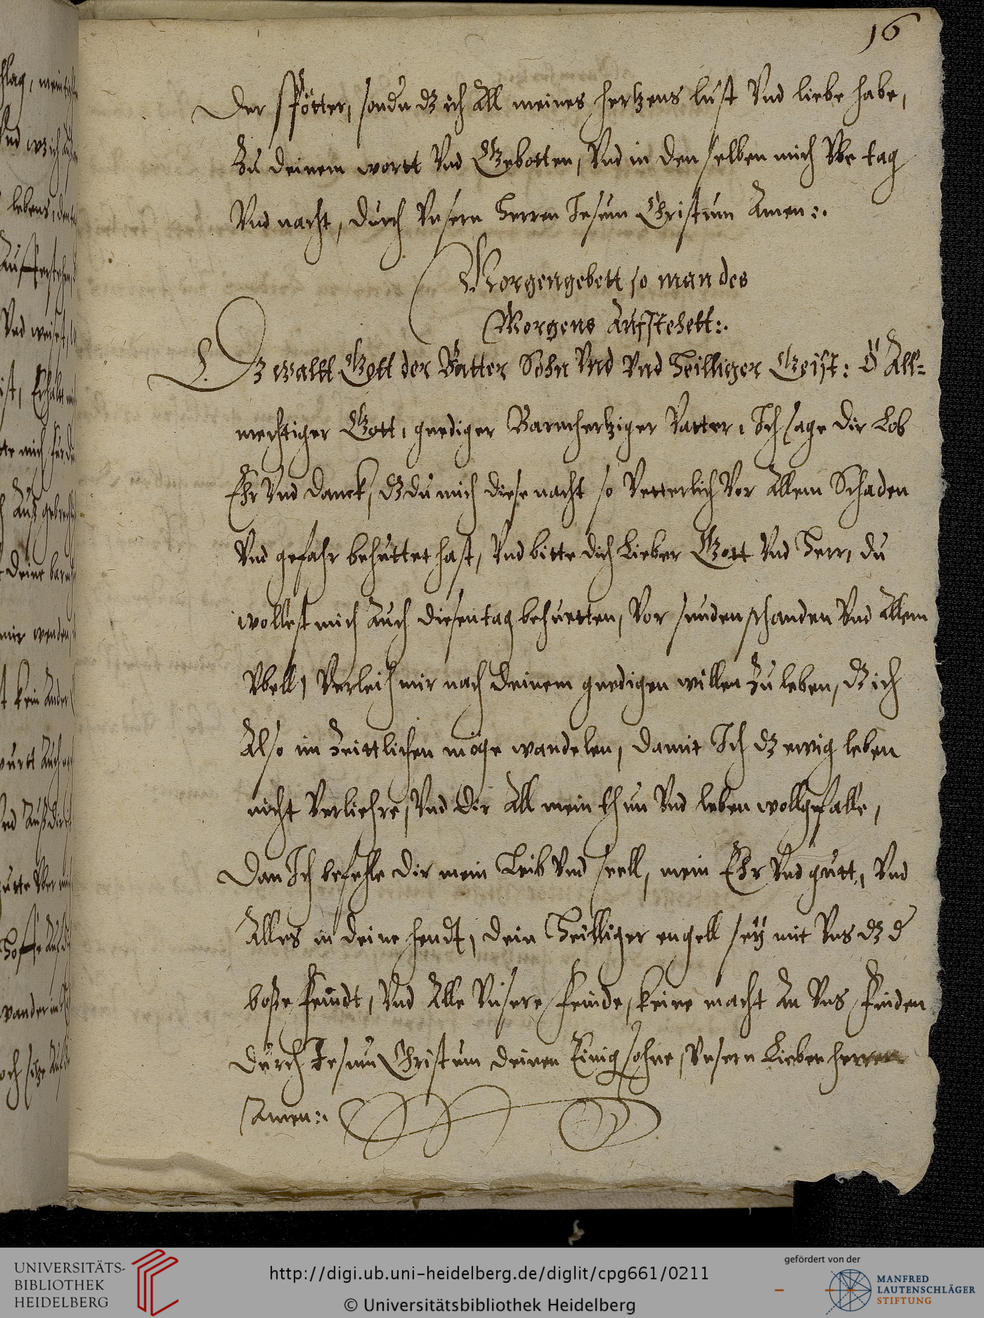 16
Der spötter, sondern dz ich All meines hertzens lust Vnd liebe habe,
Zu deinem wortt Vnd Gebotten, Vnd in den selben mich Vbe tag
Vnd nacht, durch Vnsern Herren Jesum Christum Amen:.
Morgengebett so man des
Morgens Auffstehett:.
Dz waltt Gott der Vatter Sohn Vnd Vnd Heilliger Geist: O All-
mechtiger Gott, gnediger Barmhertziger Vatter, Ich sage dir Lob
Ehr Vnd danck, dz du mich diese nacht so Vetterlich Vor Allem Schaden
Vnd gefahr behuttet hast, Vnd bitte dich Lieber Gott Vnd Herr, du
wollest mich Auch diesen tag behuetten, Vor sunden schanden Vnd Allem
Vbell, Verleih mir nach deinem gnedigen willen Zu leben, dz ich
Also im Zeittlichen möge wandelen, damit Ich dz ewig leben
nicht Verliehre, Vnd dir All mein thun Vnd leben wollgefalle,
Dan Ich befehle dir mein Leib Vnd seell, mein Ehr Vnd gutt, Vnd
Alles in deine hendt, dein Heilliger engell seÿ mit Vns dz d
boße feindt, Vnd Alle Vnsere feinde, keine macht An Vns finden
durch Jesum Christum deinen Einig sohne, Vnsern Lieben herren
Amen:.
UNIVERSITÄTS-
BIBLIOTHEK
HEIDELBERG
http://digi.ub.uni-heidelberg.de/diglit/cpg661/0211
© Universitätsbibliothek Heidelberg
gefördert von der
MANFRED
LAUTENSCHLÄGER
STIFTUNG